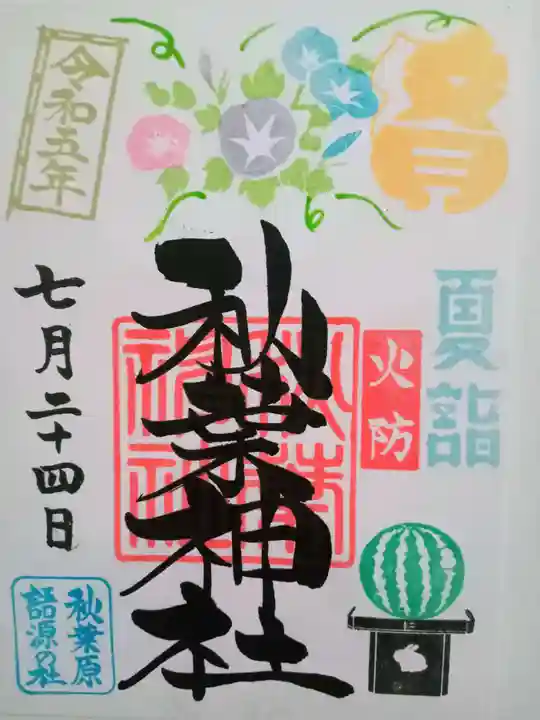 夏詣
火防
秋葉神社
秋葉神社
令和五年
七月二十四日
秋葉原
語源の社